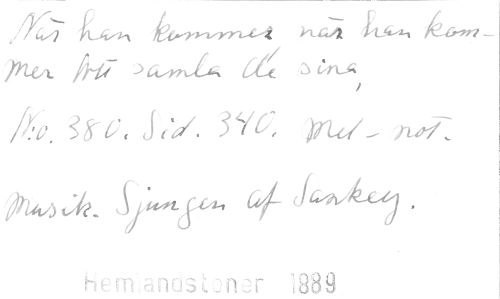 När han kommer, när han kom-
mer att samla de sina,
No. 380. Sid. 340. Mel-not.
Musik. Sjungen af Sankey.
Hemlandstoner 1889